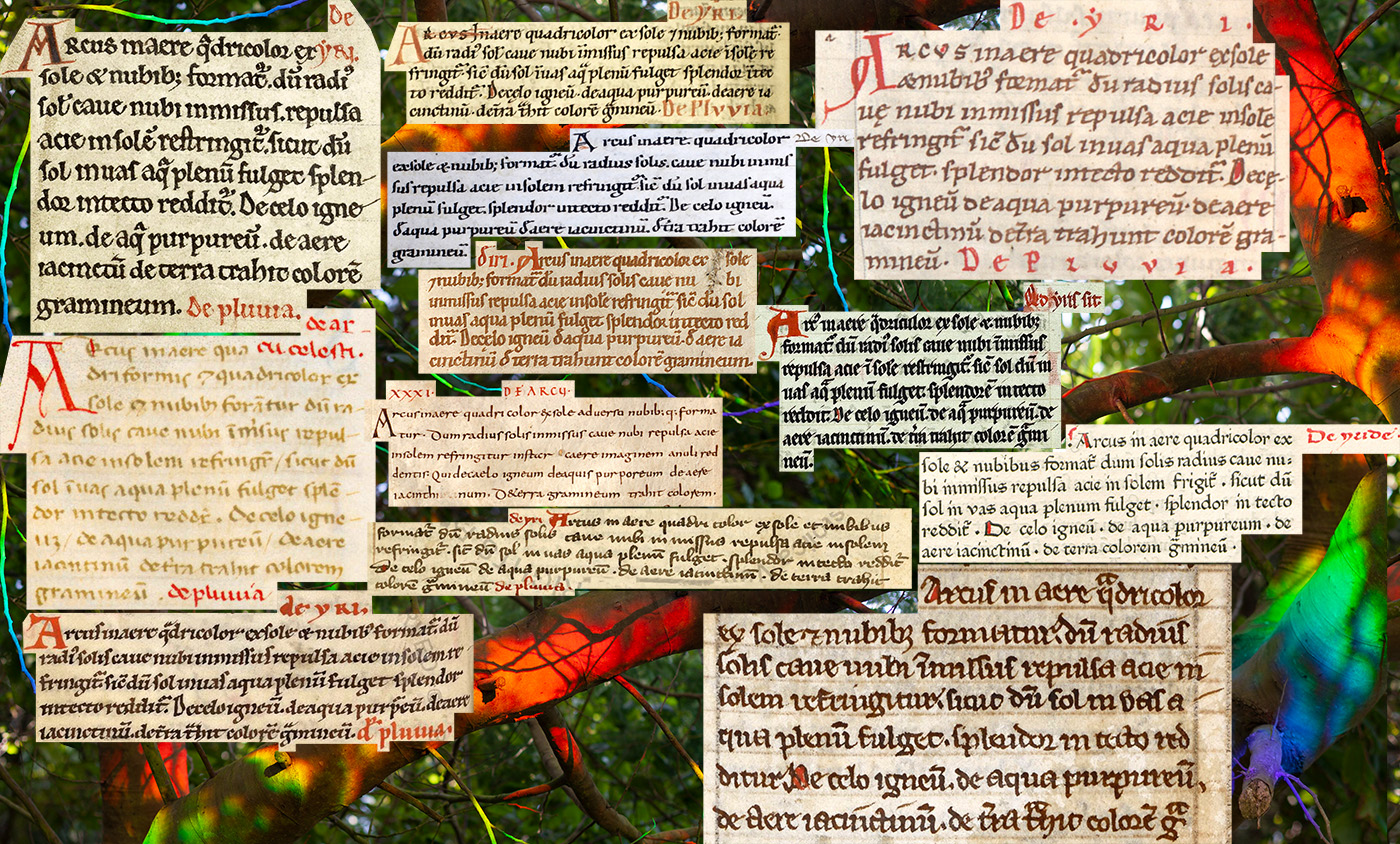 De
Arcus in aere q̄dricolor ex yri.
sole & nubib; format᷑. dū radi᷒
sol᷒ caue nubi inmissus. repulsa
acie in solē refringit᷑. sicut dū
sol in uas aq̄ plenū fulget splen-
dor in tecto reddit᷑. De celo igne-
um. de aq̄ purpureū. de aere
iacinctū de terra trahit colorē
gramineum. De pluuia.
De yRi
Arcus in aere quadricolor ex sole ⁊ nubib; format᷑.
dū radi᷒ sol᷒ caue nubi īmissus repulsa acie ī sole re
fringit᷑. sic̄ dū sol ī uas aq̄ plenū fulget splendor ī tec
to reddit᷑. De celo igneū. de aqua purpureū. de aere ia
cinctinū. de t̄ra t̄hit colorē ḡmineū. De Pluuia
De yri
Arcus in aere quadricolor
ex sole & nubib; format᷑. dū radius solis. caue nubi inmis
sus repulsa acie in solem refringit᷑. sic̄ dū sol in uas aqua
plenū fulget. splendor in tecto reddit᷑. De celo igneū.
de aqua purpureū. de aere iacinctinū. de t̄ra trahit colorē
gramineū.
De . y R i .
Arcus in aere quadricolor ex sole
& nubib᷒ format᷑ dū radius solis ca-
ue nubi inmissus repulsa acie in sole
refringit᷑ sic̄ dū sol in uas aqua plenū
fulget. splendor in tecto reddit᷑. De ce-
lo igneū de aqua purpureū. de aere
iacinctinū. de t̄ra trahunt colorē gra-
mineū. De Pluvia.
d' iri. Arcus in aere quadricolor ex sole
⁊ nubib;. format᷑ dū radius solis caue nu bi
inmissus repulsa acie in solē refringit᷑ sic̄ dū sol
in uas aqua plenū fulget splendor in tecto red
dit᷑. De celo igneū d' aqua purpureū. d' aere ia
cinctinū d' terra trahunt colorē gramineum.
de yris sit
Arc᷒ in aere q̄dricolor ex sole & nubib;
format᷑ dū radi᷒ solis caue nubi īmissus
repulsa acie ī sole refringit᷑ sic̄ sol dū in
uas aq̄ plenū fulget. splendorē in tecto
reddit᷑. De celo igneū. de aq̄ purpureū. de
aere iacinctinū. de t̄ra trahit colorē ḡmi
neū.
de ar
Arcus in aere qua cu celesti.
driformis ⁊ quadricolor ex
sole & nubib; forāt᷑ dū ra-
dius solis caue nubi īmissus repul-
sa acie in solem refringit᷑ / sicut dū
sol ī uas aqua plenū fulget splē-
dor in tecto redd᷑. De celo igne-
ū / de aqua purpureū / de aere
iacinctinū de t̄ra trahit colorem
gramineū. de pluuia
XXXI. DE ARCU.
Arcus in aere quadri color ex sole aduersa nubib; q; forma
tur. Dum radius solis inmissus caue nubi repulsa acie
in solem refringitur instar caere imaginem anuli red
dentis. Qui de caelo igneum de aquis purporeum de aere
iacinthi num. D& erra gramineum trahit colorem.
De yride
Arcus in aere quadricolor ex
sole & nubibus format᷑ dum solis radius caue nu-
bi inmissus repulsa acie in solem frigit᷑. sicut dū
sol in vas aqua plenum fulget. splendor in tecto
reddit᷑. De celo igneū. de aqua purpureum. de
aere iacinctinū. de terra colorem ḡmineū.
de yri Arcus in aere quadri color ex sole et nubibus
format᷑ dū radius solis caue nubi in missus repulsa acie in solem
refringit᷑. sic̄ dū sol in uas aqua plenū fulget. splendor in tecto reddit᷑
De celo igneū de aqua purpureū. de aere iacinctinū. de terra trahit
colorē ḡmineū de pluuia.
de yRi.
Arcus in aere q̄dricolor ex sole & nubib᷒ format᷑. dū
radi᷒ solis caue nubi inmissus repulsa acie in solem re-
fringit᷑ sic̄ dū sol in uas aqua plenū fulget splendor
in tecto reddit᷑. De celo igneū. de aqua purpeū. de aere
iacinctinū. de t̄ra t̄hit colorē ḡmineū. d' pluuia.
Arcus in aere q̄dricolor
ex sole ⁊ nubib; formatur. dū radius
solis caue nubi īmissus repulsa acie in
solem refringitur. sicut dū sol in vas a
qua plenū fulget. splendor in tecto red
ditur. De celo igneū. de aqua purpureū,
de aere iacinctinū. de t̄ra t̄hit colorē ḡ